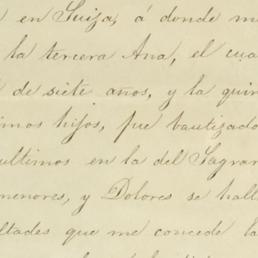 en Suiza, á donde m
la tercera Ana, el cua
de siete años, y la quin
imos hijos, fue bautizado
ultimos en la del Sagrar
menores, y Dolores se hall
ltades que me concede la